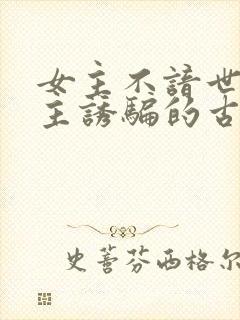 女主不諳世
主誘騙的古
史蕾芬西格尔